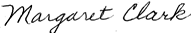 Margaret Clark